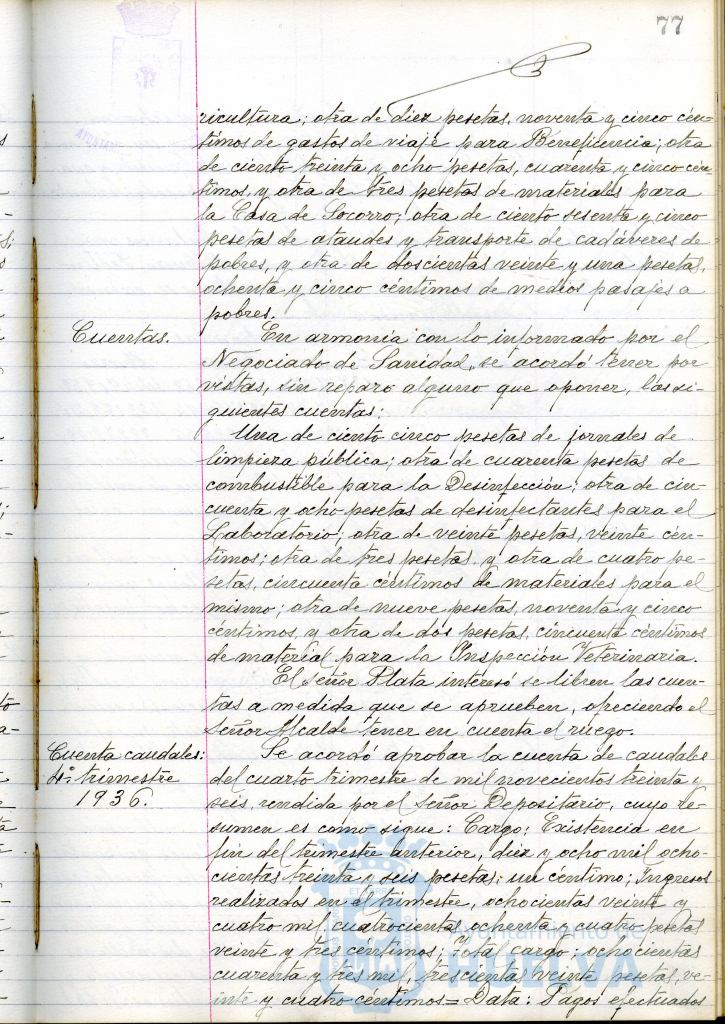 77
ricultura; otra de diez pesetas, noventa y cinco cén-
timos de gastos de viaje para Beneficencia; otra
de ciento treinta y ocho pesetas, cuarenta y cinco cén-
timos, y otra de tres pesetas de materiales para
la Casa de Socorro; otra de ciento sesenta y cinco
pesetas de ataudes y transporte de cadáveres de
pobres, y otra de doscientas veinte y una pesetas,
ochenta y cinco céntimos de medios pasajes a
pobres.
Cuentas. En armonía con lo informado por el
Negociado de Sanidad, se acordó tener por
vistas, sin reparo alguno que oponer, las si-
guientes cuentas:
Una de ciento cinco pesetas de jornales de
limpieza pública; otra de cuarenta pesetas de
combustible para la Desinfección; otra de cin-
cuenta y ocho pesetas de desinfectantes para el
Laboratorio; otra de veinte pesetas, veinte cén-
timos; otra de tres pesetas, y otra de cuatro pe-
setas, cincuenta céntimos de materiales para el
mismo; otra de nueve pesetas, noventa y cinco
céntimos, y otra de dos pesetas, cincuenta céntimos
de material para la Inspección Veterinaria.
El señor Plata interesó se libren las cuen-
tas a medida que se aprueben, ofreciendo el
señor Alcalde tener en cuenta el ruego.
Cuenta caudales: Se acordó aprobar la cuenta de caudales
4º trimestre del cuarto trimestre de mil novecientos treinta y
1936. seis, rendida por el señor Depositario, cuyo re-
sumen es como sigue: Cargo: Existencia en
fin del trimestre anterior, diez y ocho mil ocho-
cientas treinta y seis pesetas, un centimo; Ingresos
realizados en el trimestre, ochocientas veinte y
cuatro mil cuatrocientas ochenta y cuatro pesetas
veinte y tres céntimos; Total cargo: ochocientas
cuarenta y tres mil trescientas veinte pesetas, ve-
inte y cuatro céntimos = Data: Pagos efectuados